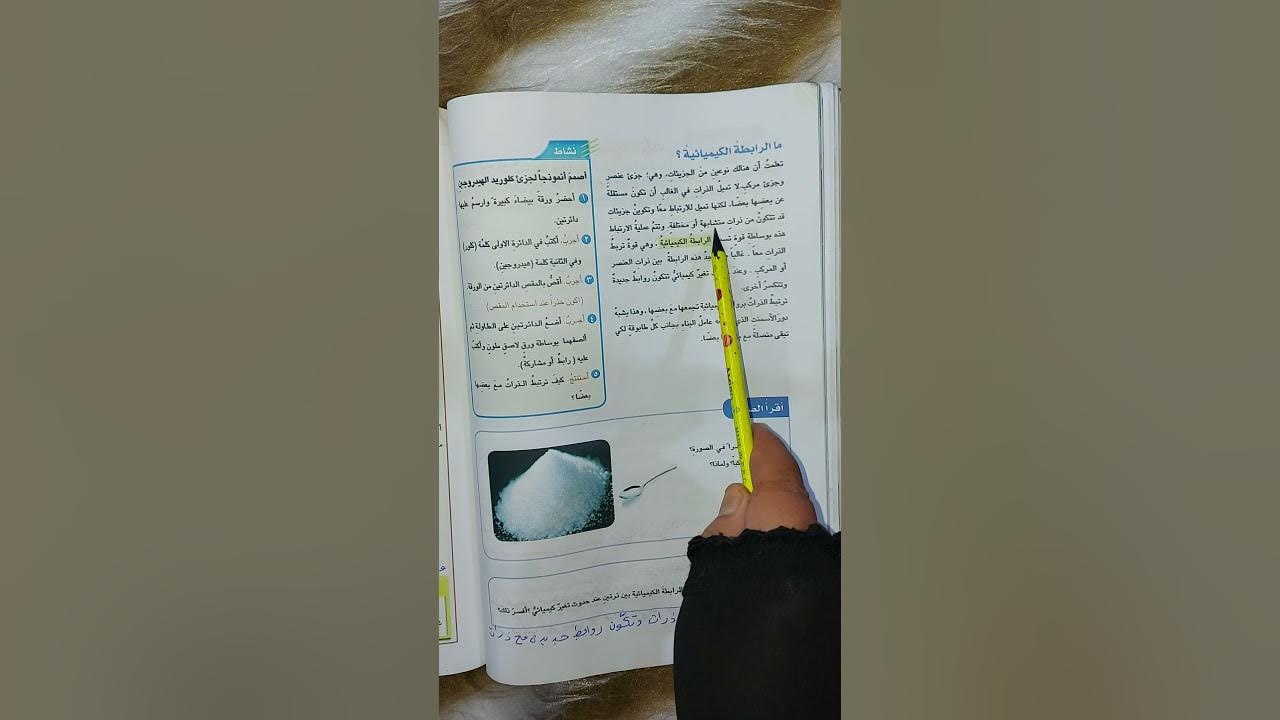 ما الرابطةُ الكيميائيةُ ؟
تعلمتُ أن هنالك نوعين منَ الجزيئاتِ، وهي؛ جزئ عنصرٍ
وجزئ مركبٍ.لا تميلُ الذرات في الغالبِ أن تكونَ مستقلةً
عن بعضِها بعضاً، لكنها تميل للارتباطِ معًا وتكوينُ جزيئاتٍ
قد تتكونُ من ذراتٍ متشابهةٍ أو مختلفةٍ. وتتمُ عمليةُ الارتباط
هذه بوساطةِ قوةٍ الرابطةُ الكيميائيةُ ، وهي قوةُ تربطُ
الذراتِ معاً . غالبا هذه الرابطةُ بين ذرات العنصر
أو المركبِ . وعند تغيّرٍ كيميائيٍّ تتكونُ روابطُ جديدةٌ
وتتكسرُ أخرى.
ترتبطُ الذراتُ كيميائيةٍ تجمعها مع بعضِها، وهذا يشبهُ
دورَ الأسمنت الذي عاملُ البناءِ بجانب كلِّ طابوقةٍ لكي
تبقى متصلةً مع بعضًا.
نشاط
أصممُ أنموذجاً لجزئ كلوريد الهيدروجين
١ أحضرُ ورقةً بيضاءَ كبيرةً وارسمُ عليها
دائرتين.
٢ أجربُ. أكتبُ في الدائرة الاولى كلمةَ (كلور)
وفي الثانيةِ كلمة (هيدروجين).
٣ أجربُ. أقصُّ بالمقصِ الدائرتين من الورقة.
(أكون حذراً عند استخدام المقص)
٤ أجربُ. أضعُ الدائرتين على الطاولةِ ثم
ألصقهما بوساطة ورقٍ لاصقٍ ملونٍ وأكتبُ
عليه (رابطٌ أو مشاركةٌ).
٥ أستنتجُ. كيفَ ترتبطُ الذراتُ معَ بعضِها
بعضًا ؟
أقرأ
في الصورةِ؟
ولماذا؟
الرابطة الكيميائية بين ذرتين عند حدوث تغيّرٍ كيميائيٍّ ،أفسرُ ذلك؟
ذرات وتكوّن روابط جديدة مع ذرات